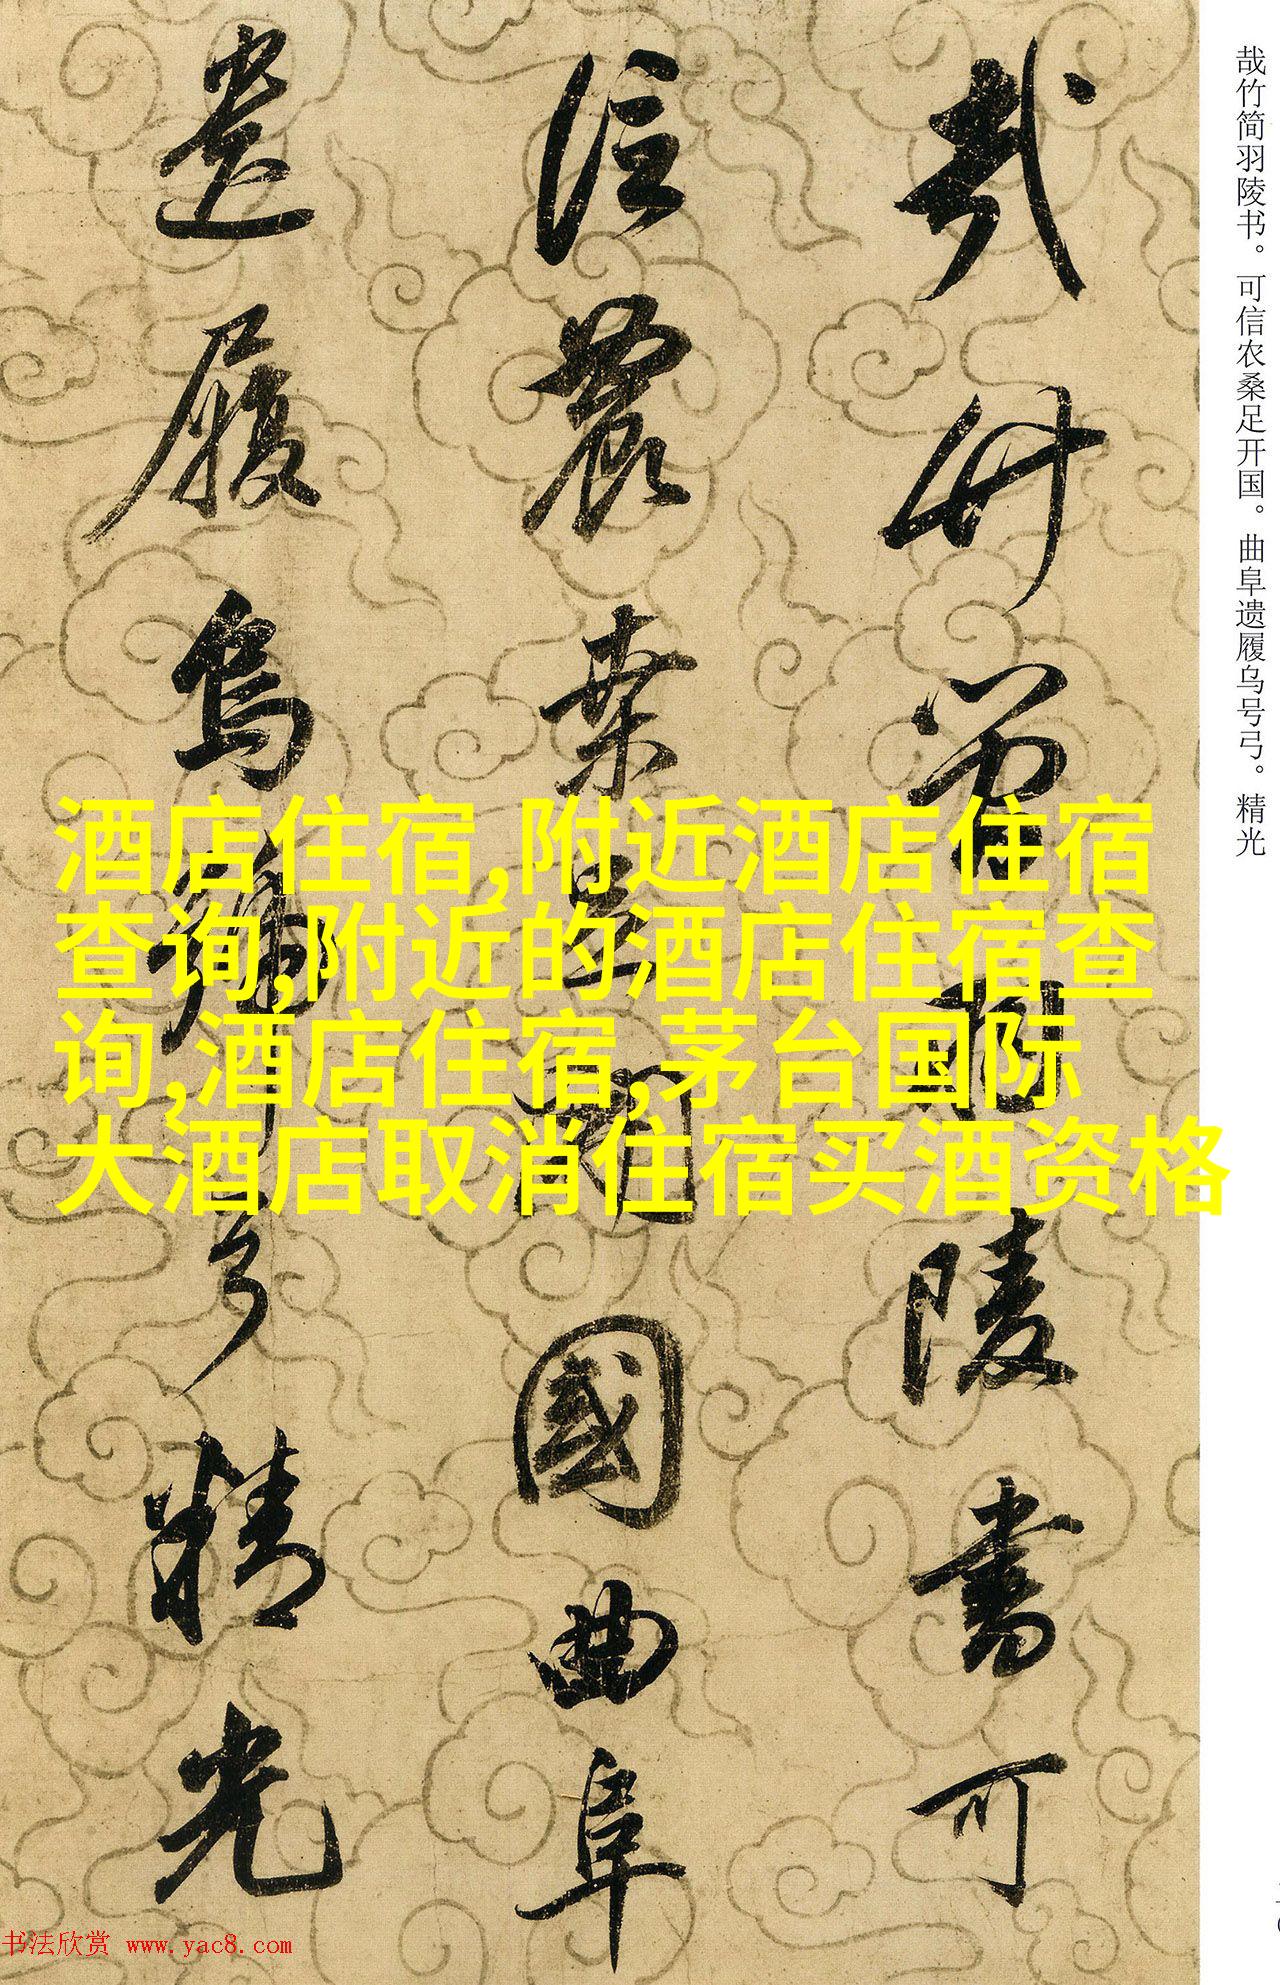 哉竹簡羽陵書可
信農桒足開國曲阜
遺履烏號弓精光
哉竹简羽陵书。可信农桑足开国。曲阜遗履乌号弓。精光
酒店住宿,附近酒店住宿
查询,附近的酒店住宿查
询,酒店住宿,茅台国际
大酒店取消住宿买酒资格
书法欣赏 www.yac8.com